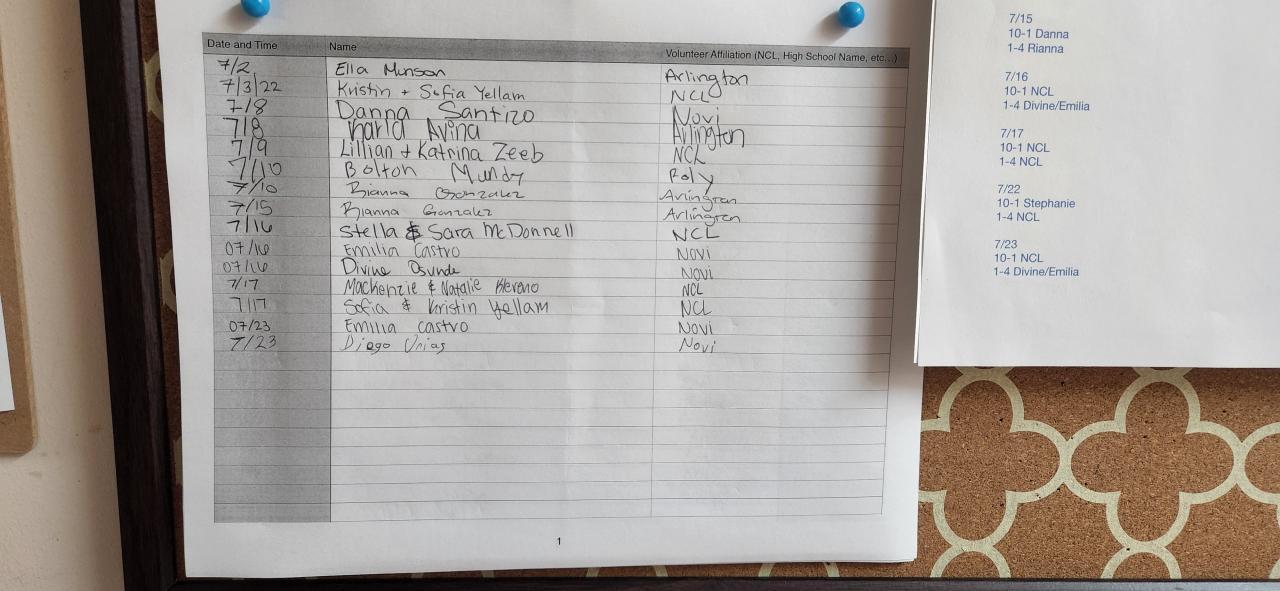 Date and Time Name Volunteer Affiliation (NCL, High School Name, etc...)
7/2 Ella Munson Arlington
7/3/22 Kristin + Sofia Yellam NCL
7/8 Danna Santizo Novi
7/8 Karla Avina Arlington
7/9 Lillian + Katrina Zeeb NCL
7/10 Bolton Mundy Poly
7/10 Rianna Gonzalez Arlington
7/15 Rianna Gonzalez Arlington
7/16 Stella & Sara McDonnell NCL
07/16 Emilia Castro Novi
07/16 Divine Osunde Novi
7/17 Mackenzie & Natalie NCL
7/17 Sofia & Kristin Yellam NCL
07/23 Emilia Castro Novi
7/23 Diego Urias Novi
1
7/15
10-1 Danna
1-4 Rianna
7/16
10-1 NCL
1-4 Divine/Emilia
7/17
10-1 NCL
1-4 NCL
7/22
10-1 Stephanie
1-4 NCL
7/23
10-1 NCL
1-4 Divine/Emilia